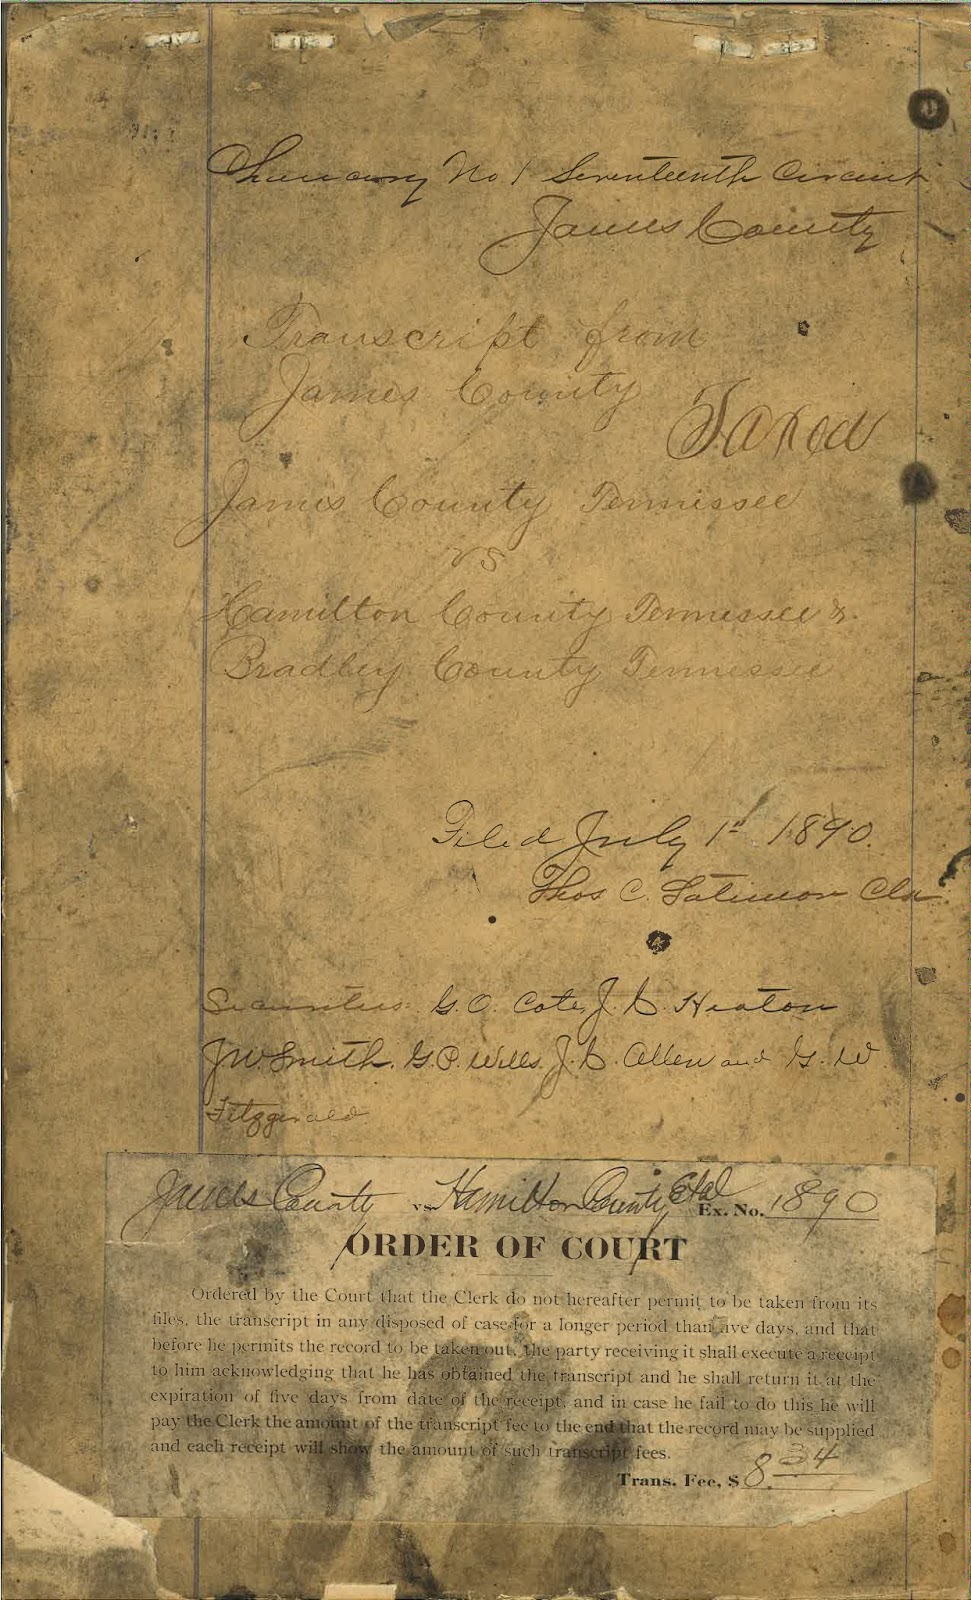 Chancery No 1 Seventeenth Circuit
James County
Transcript from
James County
Taxed
James County Tennessee
vs
Hamilton County Tennessee &
Bradley County Tennessee
Filed July 1st 1890.
Thos C. Latimor Clk
Securities: G. O. Cate, J. C. Heaton
J W. Smith, G. P. Wells, J. C. Allen and G. W.
Fitzgerald
James County vs. Hamilton County Et al Ex. No. 1890
ORDER OF COURT
Ordered by the Court that the Clerk do not hereafter permit to be taken from its
files, the transcript in any disposed of case for a longer period than five days, and that
before he permits the record to be taken out, the party receiving it shall execute a receipt
to him acknowledging that he has obtained the transcript and he shall return it at the
expiration of five days from date of the receipt, and in case he fail to do this he will
pay the Clerk the amount of the transcript fee to the end that the record may be supplied
and each receipt will show the amount of such transcript fees.
Trans. Fee, $ 8.34